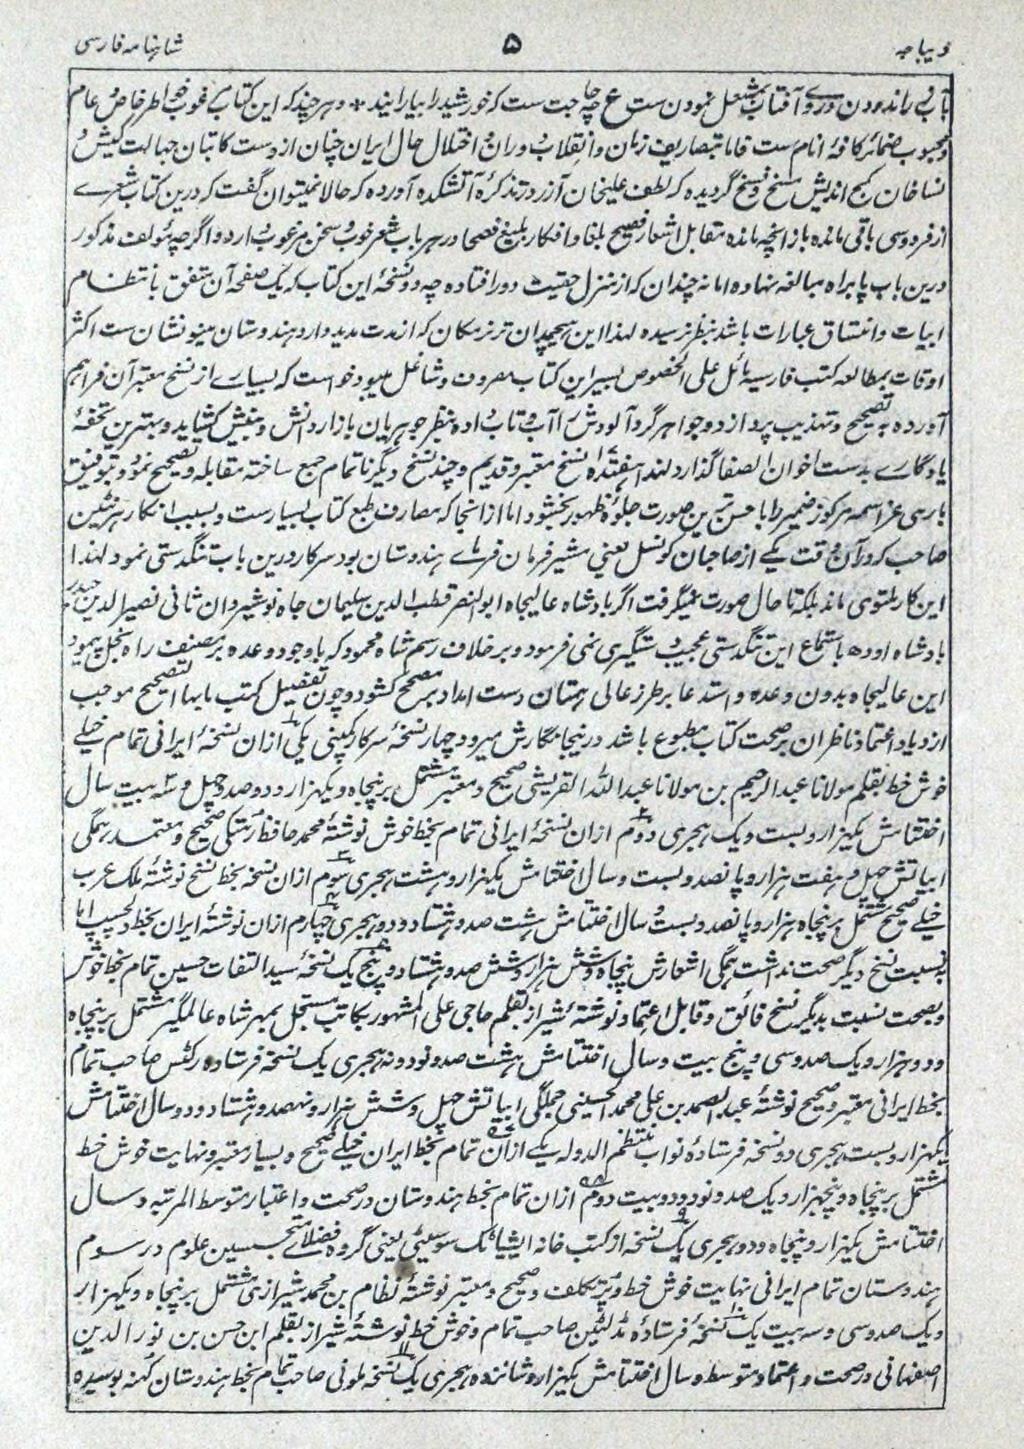 دیباچه ۵ شاهنامه فارسی
تابی راندودن وروے آفتاب بمشعل نمودن ست ع چه حاجت ست که خورشید را بیارایند * و هر چند که این کتاب مرغوب خواطر خاص و عام
و محبوب ضمائر کافهٔ انام ست فاما بتصاریف زمان و انقلاب دوران و اختلال حال ایران چنان از دست کاتبان جهالت کیش و
نساخان کج اندیش مسخ و نسخ گردیده که لطف علیخان آزر در تذکرهٔ آتشکده آورده که حالا نمیتوان گفت که درین کتاب شعرے
از فردوسی باقی مانده باز انچه مانده مقابل اشعار فصیح بلغا و افکار بلیغ فصحا در هر باب شعر خوب و سخن مرغوب دارد و اگرچه مؤلف مذکور
درین باب پا براه مبالغه نهاده اما نه چندان که از منزل حقیقت دور افتاده چه دو نسخهٔ این کتاب که یک صفحه آن متفق با نتظام
ابیات و اتساق عبارات باشد بنظر نرسیده لهذا این هیچمدان ترنر مکان که از مدت مدید وارد هندوستان مینو نشان ست اکثر
اوقات بمطالعه کتب فارسیه مائل علی الخصوص بسیر این کتاب مصروف و شاغل میبود خواست که بسیارے از نسخ معتبر آن فراهم
آورده به تصحیح و تهذیب پردازد و جواهر گرد آلودش را آب و تاب داده بنظر جوهریان بازار دانش و بینش کشاید و بهترین تحفهٔ
یادگارے بدست اخوان الصفا گذارد لهذا هفتده نسخ معتبر و قدیم و چند نسخ دیگر ناتمام جمع ساخته مقابله و تصحیح نمود و بتوفیق
باری عز اسمه مرکوز ضمیر را با حسن ترین صورت جلوهٔ ظهور بخشود اما از انجا که مصارف طبع کتاب بسیار ست و بسبب انکار
صاحب که در آن وقت یکے از صاحبان کونسل یعنی مشیر فرمان فرماے هندوستان بود سرکار درین باب تنگدستی نمود لهذا
این کار ملتوی ماند بلکه تا حال صورت نمیگرفت اگر بادشاه عالیجاه ابو النصر قطب الدین سلیمان جاه نوشیروان ثانی نصیر الدین حیدر
بادشاه اودهه با ستماع این تنگدستی عجیب دستگیری نمی فرمود و بر خلاف رسم شاه محمود که با وجود وعده بر مصنف راه بخل پیمود
این عالیجاه بدون وعده و استدعا بر طرز عالی همتان دست امداد بر مصحح کشود و چون تفصیل کتب ما بها التصحیح موجب
ازدیاد اعتماد ناظران بر صحت کتاب مطبوع باشد در نیجا نگارش میرود چهار نسخهٔ سرکار کمپنی یکی ازان نسخهٔ ایرانی تمام خیلے
خوش خط بقلم مولانا عبد الرحیم بن مولانا عبد الله القریشی صحیح و معتبر مشتمل بر پنجاه و یکهزار و دو صد و چهل و سه بیت سال
اختتامش یکهزار و بست و یک هجری دوم ازان نسخهٔ ایرانی تمام بخط خوش نوشتهٔ محمد حافظ صحیح و معتمد همگی
ابیاتش چهل و هفت هزار و پانصد و بست و سال اختتامش یکهزار و هشت هجری سوم ازان نسخه بخط نسخ نوشتهٔ ملک عرب
خیلے صحیح مشتمل بر پنجاه هزار و پانصد و بست و سال اختتامش هشت صد و هشتاد و دو هجری چهارم ازان نوشتهٔ ایران بخط دلچسپ اما
بنسبت نسخ دیگر صحت نداشت همگی اشعارش پنجاه و شش هزار و شش صد و هشتاد و پنج یک نسخهٔ سید التفات حسین تمام بخط خوش
و بصحت نسبت بدیگر نسخ فائق و قابل اعتماد نوشتهٔ شیراز بقلم حاجی علی المشهور بکاتب مستجل بمهر شاه عالمگیر مشتمل بر پنجاه
و دو هزار و یک صد و سی و پنج بیت و سال اختتامش هشت صد و نود و نه هجری یک نسخه فرستاده صاحب تمام
بخط ایرانی معتبر و صحیح نوشتهٔ عبد الصمد بن علی محمد الحسینی جملگی ابیاتش چهل و شش هزار و نهصد و هشتاد و دو و سال اختتامش
یکهزار و بست هجری دو نسخه فرستادهٔ نواب منتظم الدوله یکے ازان تمام بخط ایران خیلے صحیح و بسیار معتبر و نهایت خوش خط
مشتمل بر پنجاه و پنجهزار و یک صد و نود و دو بیت دوم ازان تمام بخط هندوستان در صحت و اعتبار متوسط المرتبه و سال
اختتامش یکهزار و پنجاه و دو هجری یک نسخه از کتب خانه ایشیاتک سوسیٹی یعنی گروه فضلاے متجسسین علوم در رسوم
هندوستان تمام ایرانی نهایت خوش خط و پر تکلف و صحیح و معتبر نوشتهٔ نظام بن محمد شیرازی مشتمل بر پنجاه و یکهزار
و یک صد و سی و سه بیت یک نسخهٔ فرستادهٔ مڈلٹین صاحب تمام و خوش خط نوشتهٔ شیراز بقلم ابن حسن بن نور الدین
اصفهانی در صحت و اعتماد متوسط و سال اختتامش یکهزار و شانزده هجری یک نسخهٔ ملونی صاحب تمام بخط هندوستان کهنه بوسیده